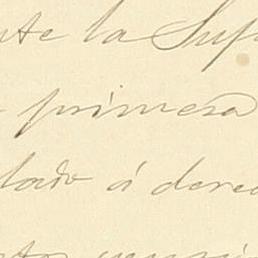 nte la Sup
primera
lado á derec